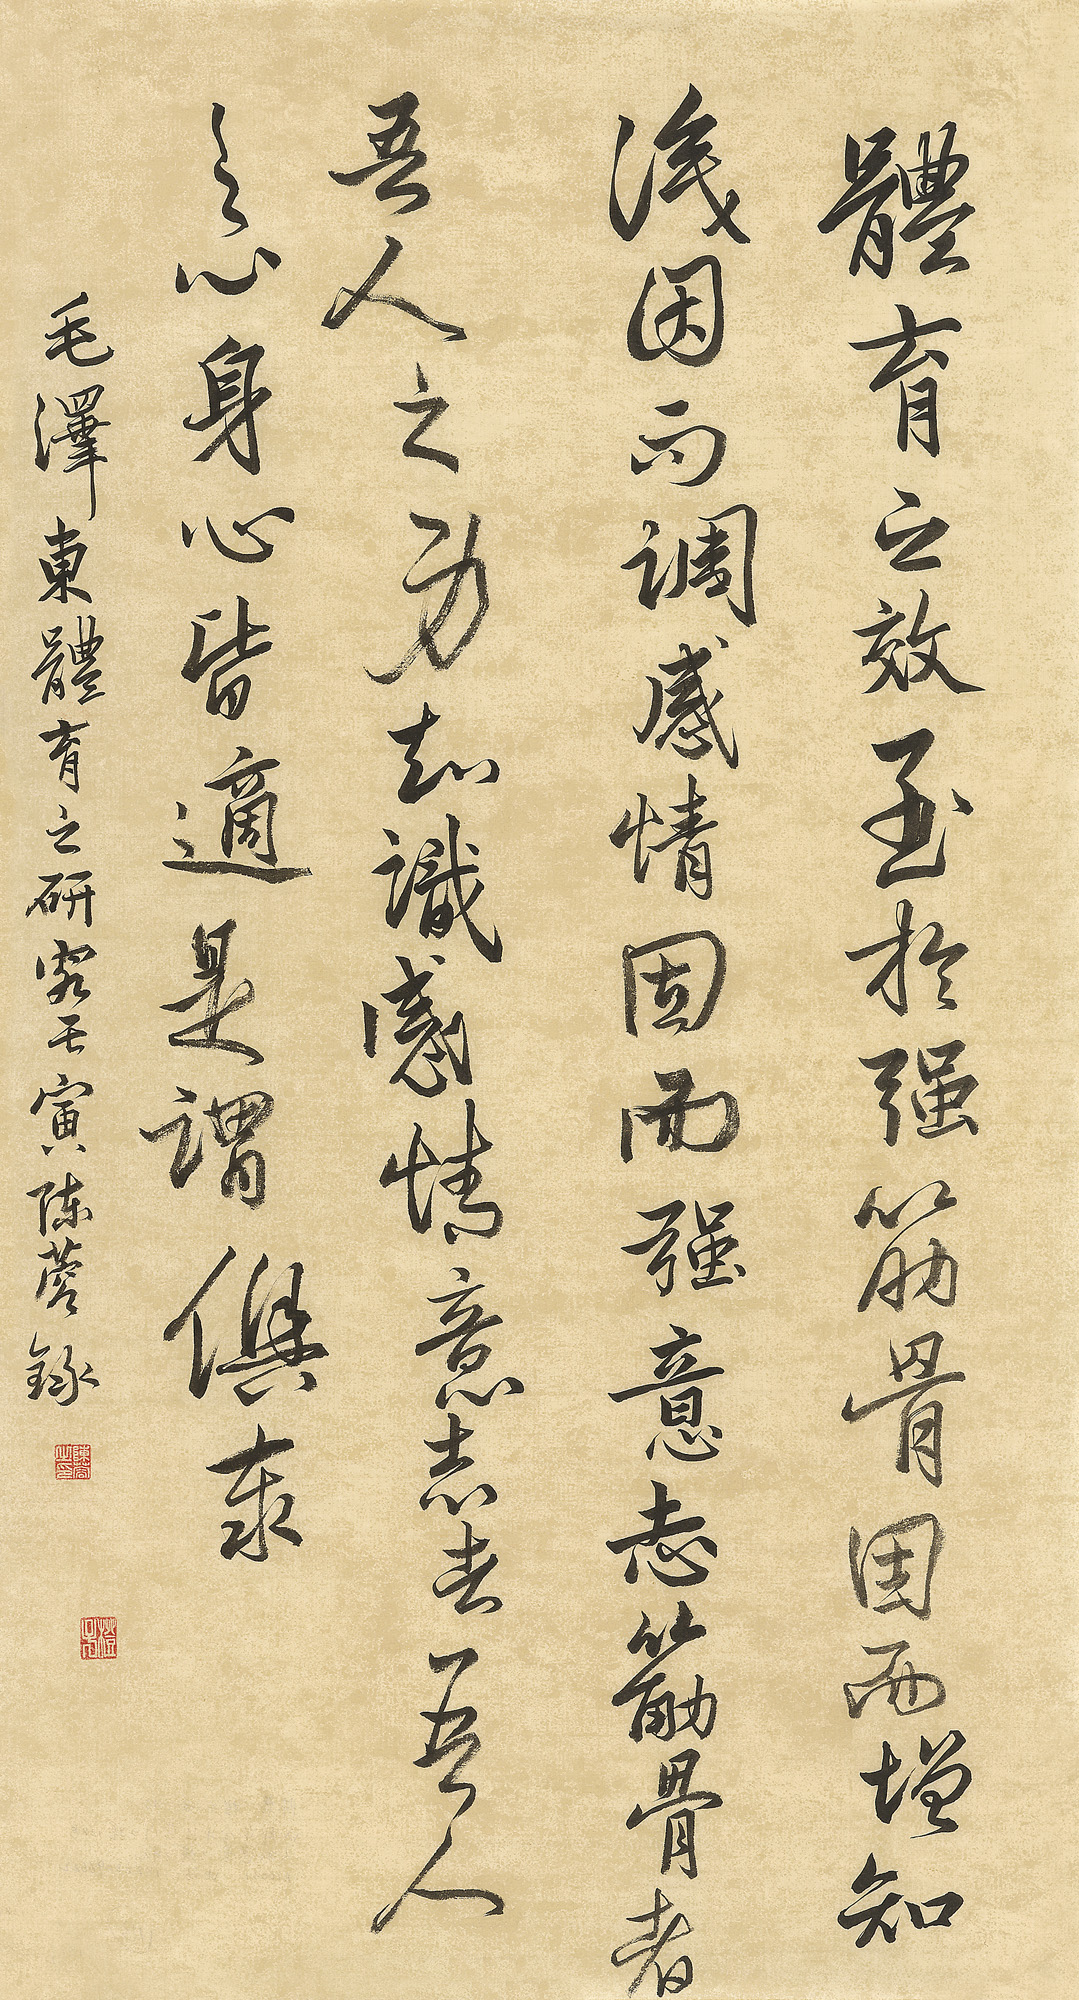 體育之效至於强筋骨因而增知
識因而調感情因而强意志筋骨者
吾人之身知識感情意志者吾人
之心身心皆適是謂俱泰
毛澤東體育之研究壬寅陈蓉錄